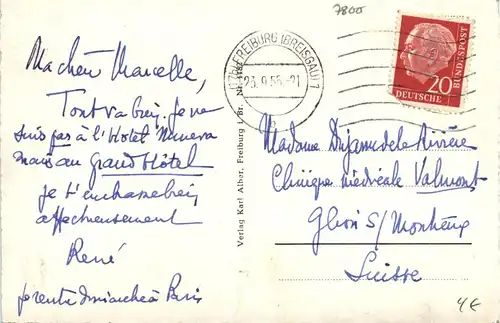 7800
Ma chère Marcelle,
Tout va bien. Je ne
suis pas à l'Hotel Minerva
mais au Grand Hôtel
je t'embrasse bien
affectueusement
René
je rentre dimanche à Paris
FREIBURG (BREISGAU) 1
23.9.55.-21
20
DEUTSCHE
BUNDESPOST
Verlag Karl Alber, Freiburg i. Br.
Madame Dujarric de la Rivière
Clinique médicale Valmont
Glion s/ Montreux
Suisse
4€